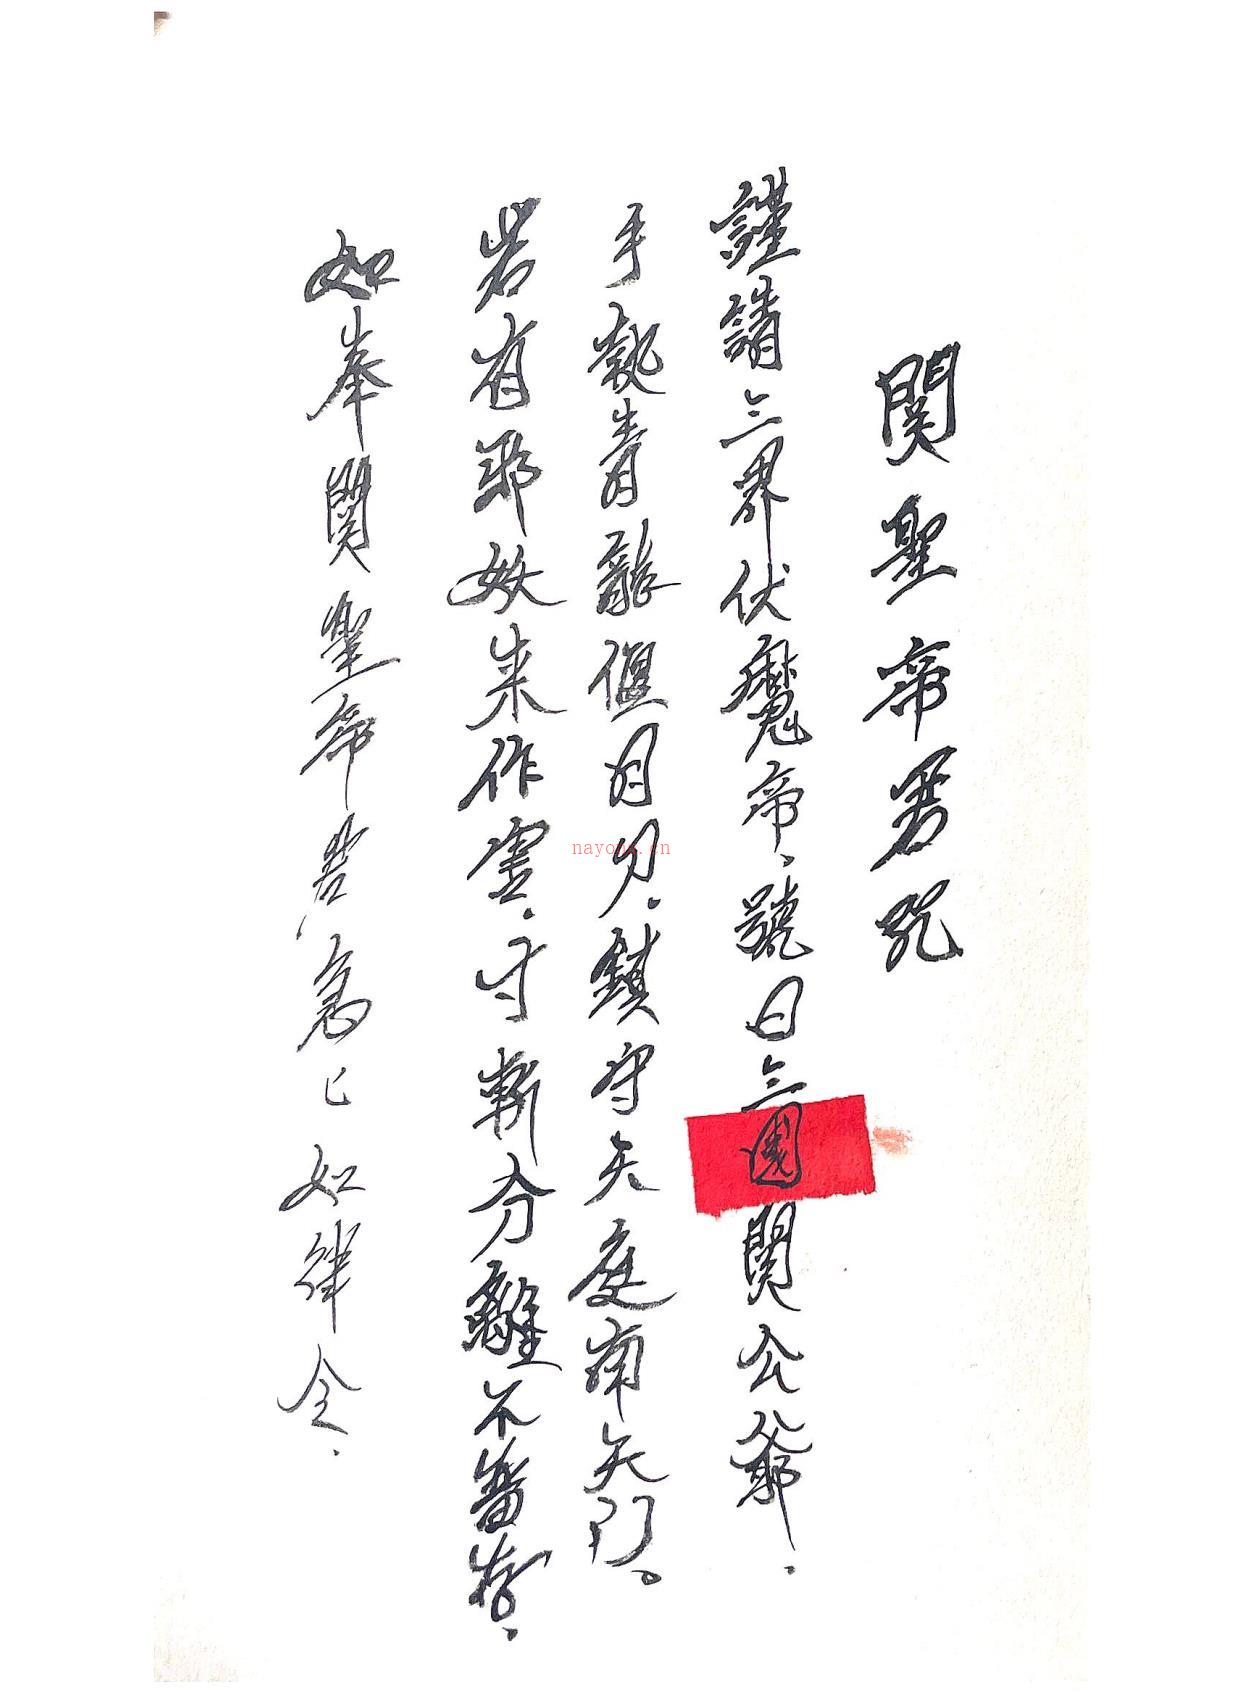 関聖帝君咒
謹請三界伏魔帝、號曰三國関公爺、
手執青龍偃月刀、鎮守天庭南天門。
若有邪妖来作害、寸斬分離不留存、
如奉関聖帝君急如律令、
nayona.cn